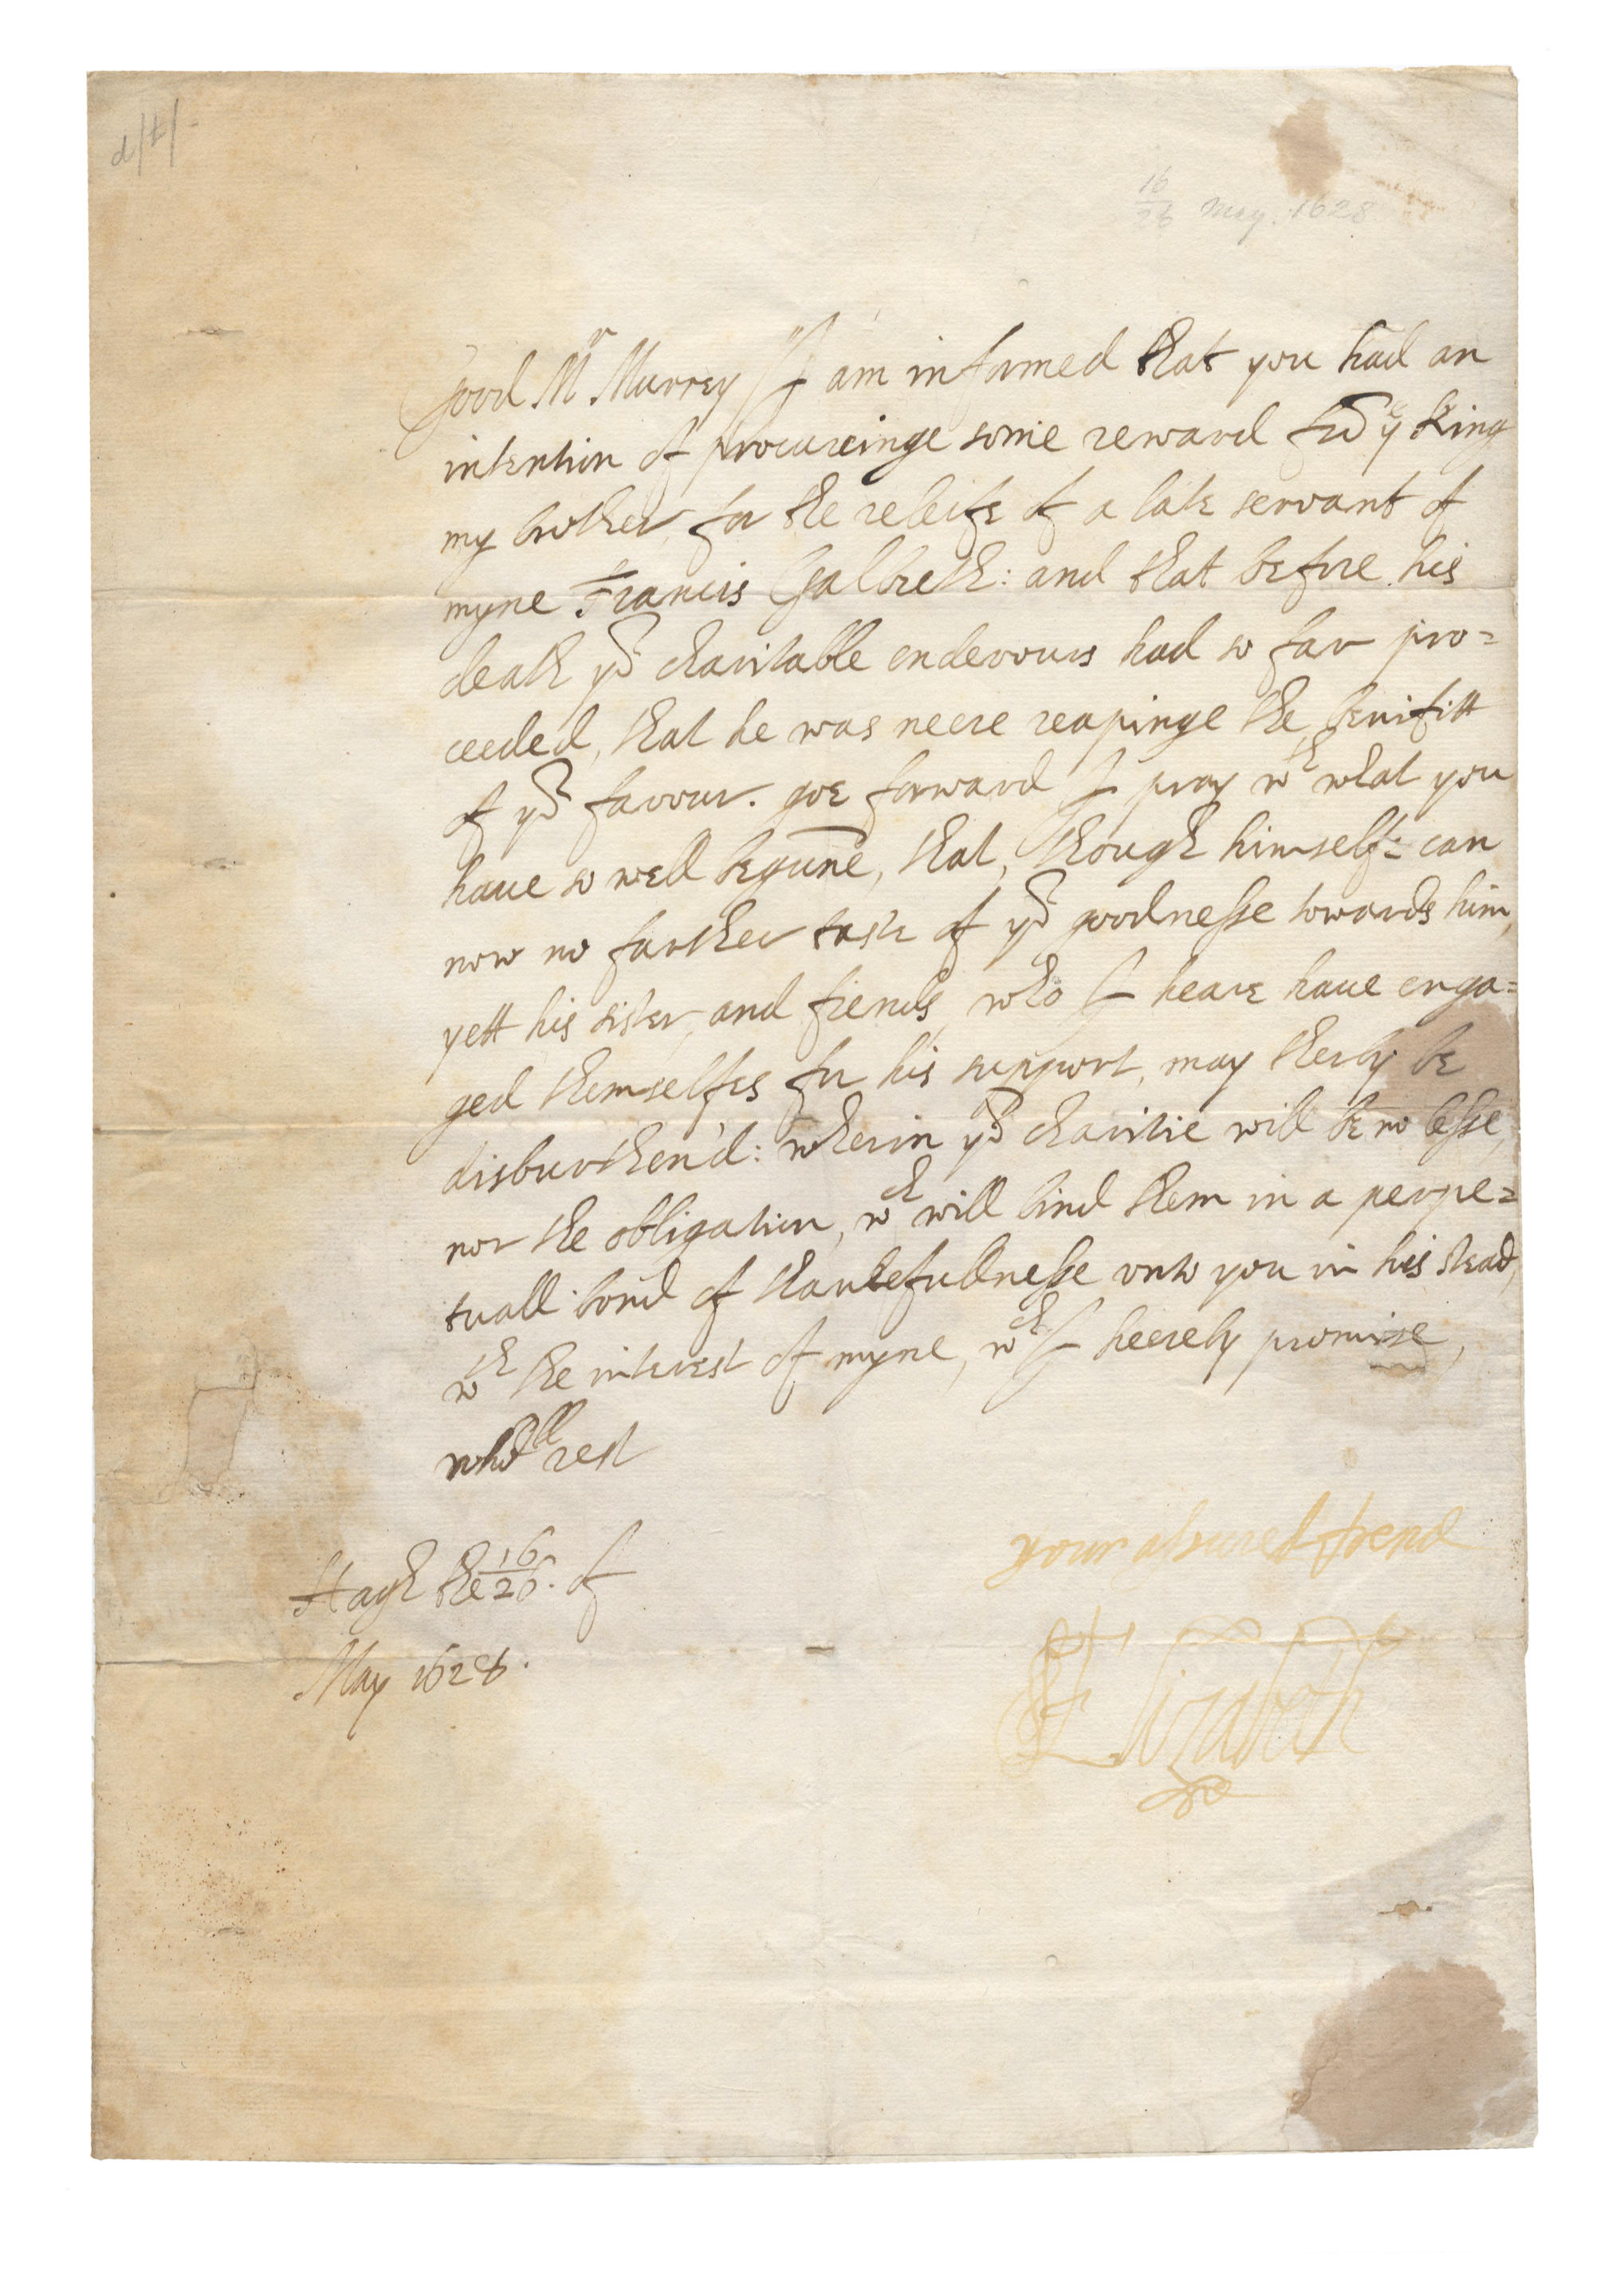 d/t/
16/26 May. 1628
Good Mr Murrey I am informed that you had an
intention of procureinge some reward fro ye King
my brother, for the releife of a late servant of
myne Francis Galbreth: and that before his
death yr charitable endevours had so far pro=
ceeded, that he was neere reapinge the benifitt
of yr favour. goe forward I pray wth what you
haue so well begune, that, though himself: can
now no farther taste of yr goodnesse towards him,
yett his sister, and friends, who I heare haue enga=
ged themselfes for his support, may therby be
disburthen'd: wherin yr charitie will be no lesse,
nor the obligation, wch will bind them in a perpe=
tuall bond of thankefullnesse vnto you in his stead,
wth the interest of myne, wch I heereby promise,
who'll rest
your assured frend
Hagh the 16/26. of
May 1628.
Elizabeth